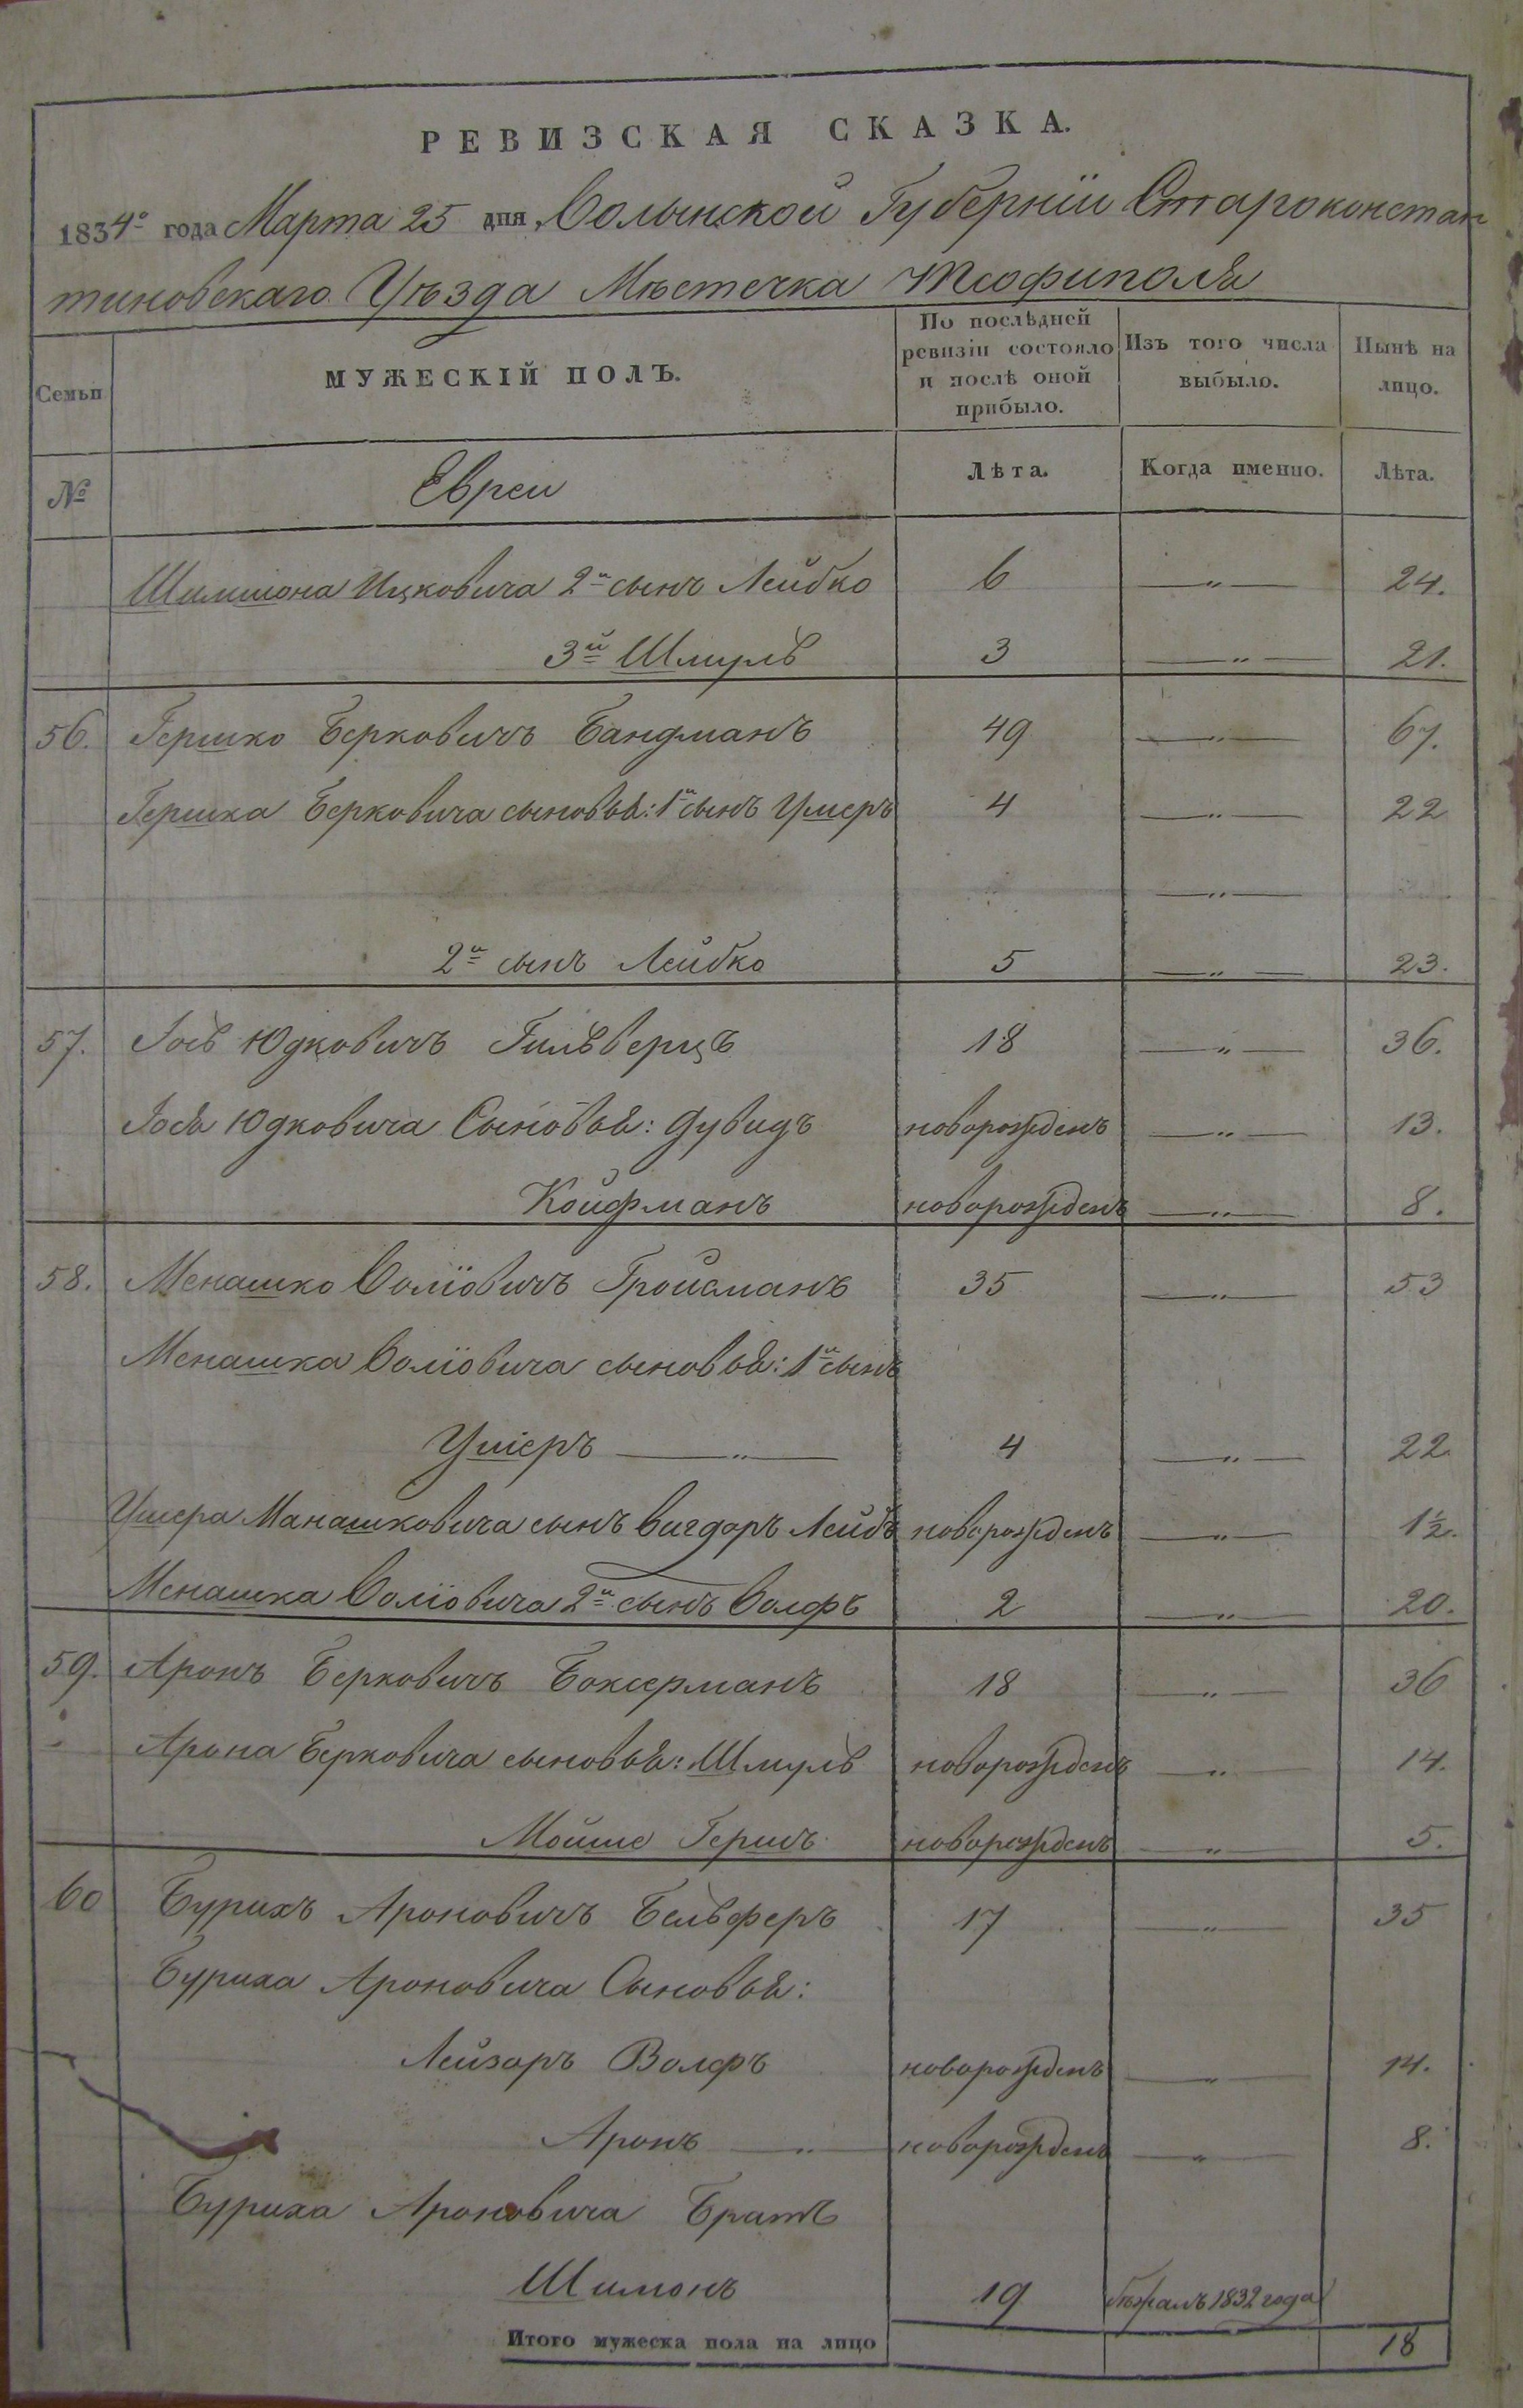 РЕВИЗСКАЯ СКАЗКА.
1834го года Марта 25 дня, Волынской Губернїи Староконстан
тиновскаго Уѣзда Мѣстечка Теофиполя
Семьи
МУЖЕСКІЙ ПОЛЪ.
По послѣдней ревизіи состояло и послѣ оной прибыло.
Изъ того числа выбыло.
Нынѣ на лицо.
№ Евреи Лѣта. Когда именно. Лѣта.
Шимшона Ицковича 2й сынъ Лейбко 6 —„— 24.
3й Шмуль 3 —„— 21.
56. Гершко Берковичъ Бандманъ 49 —„— 67.
Гершка Берковича сыновья: 1й сынъ Ушеръ 4 —„— 22
—„—
2й сынъ Лейбко 5 —„— 23.
57. Іось Юдковичъ Гильверцъ 18 —„— 36.
Іося Юдковича Сыновья: Дувидъ новорожденъ —„— 13.
Койфманъ новорожденъ —„— 8.
58. Менашко Волїовичъ Гройсманъ 35 —„— 53
Менашка Волїовича сыновья: 1й сынъ
Ушеръ —„— 4 —„— 22.
Ушера Манашковича сынъ Вигдоръ Лейбъ новорожденъ —„— 1½.
Менашка Волїовича 2й сынъ Волфъ 2 —„— 20.
59. Аронъ Берковичъ Боксерманъ 18 —„— 36
Арона Берковича сыновья: Шмуль новорожденъ —„— 14.
Мойше Гершъ новорожденъ —„— 5.
60 Бурихъ Ароновичъ Бельферъ 17 —„— 35
Буриха Ароновича Сыновья:
Лейзоръ Волфъ новорожденъ —„— 14.
Аронъ —„— новорожденъ —„— 8.
Буриха Ароновича Братъ
Шимонъ 19 бѣжалъ 1832 года
Итого мужеска пола на лицо 18